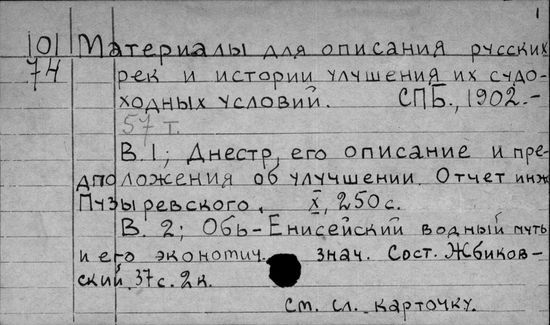 1
101
74
Материалы для описания русских
рек и истории улучшения их судо-
ходных условий. СПБ., 1902.-
57 т.
В. 1; Днестр, его описание и пре-
дположения об улучшении. Отчет инж
Пузыревского. X, 250 с.
В. 2; Обь-Енисейский водный путь
и его экономич. знач. Сост. Жбиков-
ский. 37 с. 2 к.
См. сл. карточку.